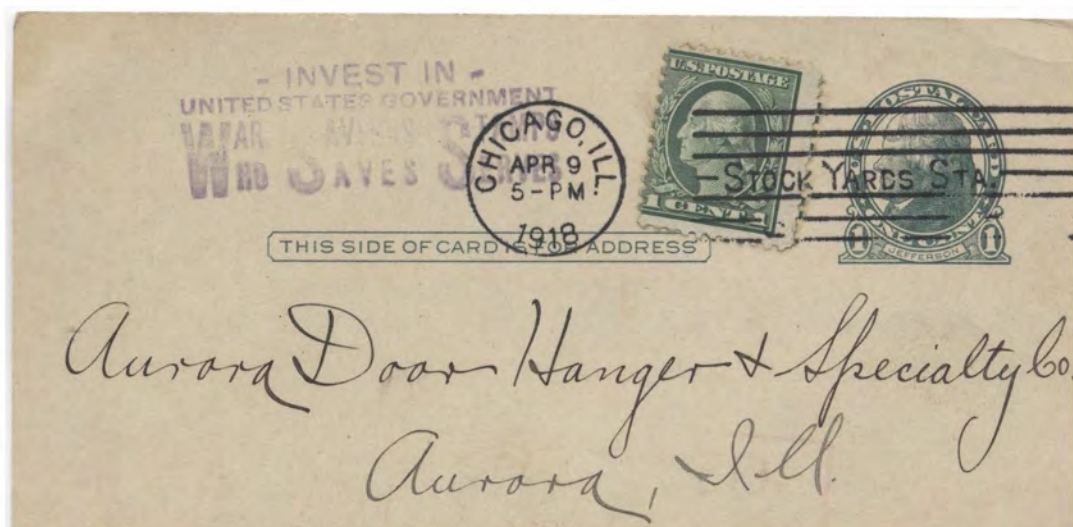 - INVEST IN -
UNITED STATES GOVERNMENT
WAR SAVINGS STAMPS
WHO SAVES SERVES
CHICAGO, ILL.
APR 9
5-PM
1918
U.S. POSTAGE
1 CENT 1
STOCK YARDS STA.
1 ONE CENT 1
JEFFERSON
THIS SIDE OF CARD IS FOR ADDRESS
Aurora Door Hanger & Specialty Co.
Aurora, Ill.